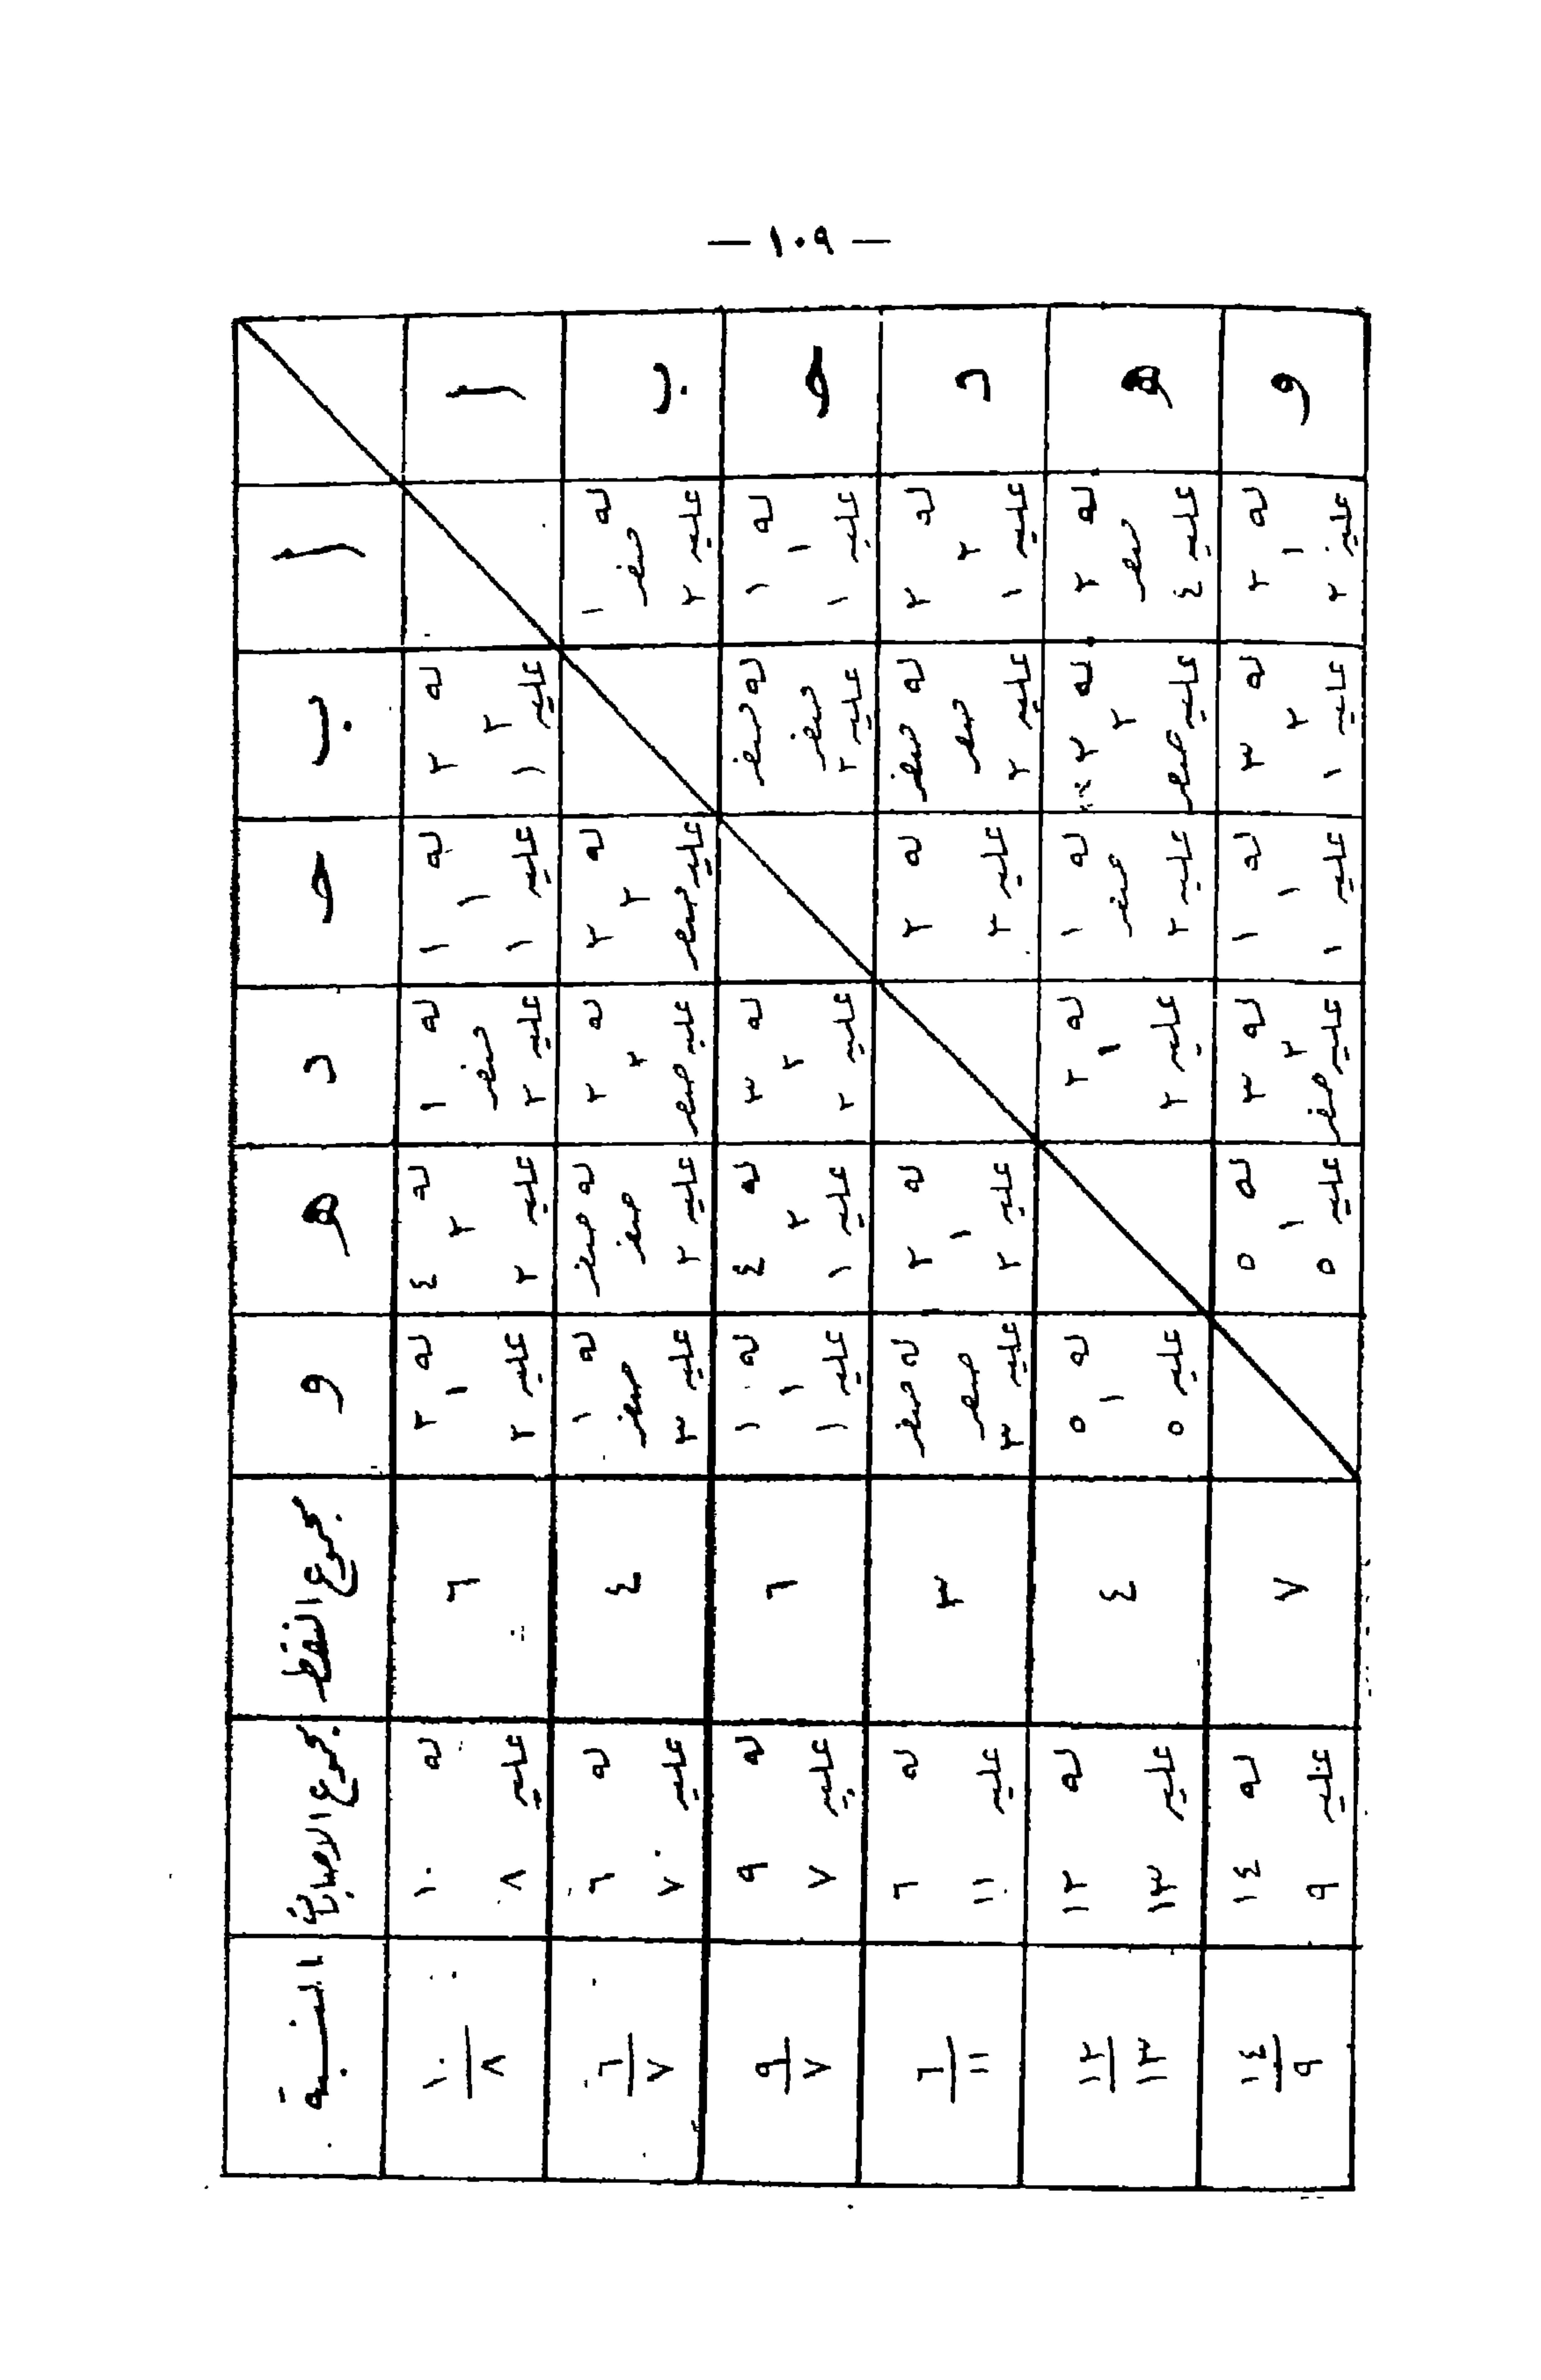 — ١٠٩ —
ا ب حـ د هـ و مجموع النقط مجموع الاصابات النسبة
ا
له ٢
٢
عليه ١
له ١
١
عليه ١
له ١
صفر
عليه ٢
له ٤
٢
عليه ٢
له ٢
١
عليه ٢
٦
له ١٠
عليه ٨
١٠
٨
ب
له ١
صفر
عليه ٢
له ٢
٢
عليه صفر
له ٢
٢
عليه صفر
له صفر
صفر
عليه ٢
له ١
صفر
عليه ٣
٤
له ٦
عليه ٧
٦
٧
حـ
له ١
١
عليه ١
له صفر
صفر
عليه ٢
له ٣
٢
عليه ٢
له ٤
٢
عليه ١
له ١
١
عليه ١
٦
له ٩
عليه ٧
٩
٧
د
له ٢
٢
عليه ١
له صفر
صفر
عليه ٢
له ٢
عليه ٣
له ٢
١
عليه ٢
له صفر
صفر
عليه ٣
٣
له ٦
عليه ١١
٦
١١
هـ
له ٢
صفر
عليه ٤
له ٢
٢
عليه صفر
له ١
صفر
عليه ٢
له ٢
١
عليه ٢
له ٥
١
عليه ٥
٤
له ١٢
عليه ١٣
١٢
١٣
و
له ٢
١
عليه ٢
له ٣
٢
عليه ١
له ١
١
عليه ١
له ٣
٢
عليه صفر
له ٥
١
عليه ٥
٧
له ١٤
عليه ٩
١٤
٩